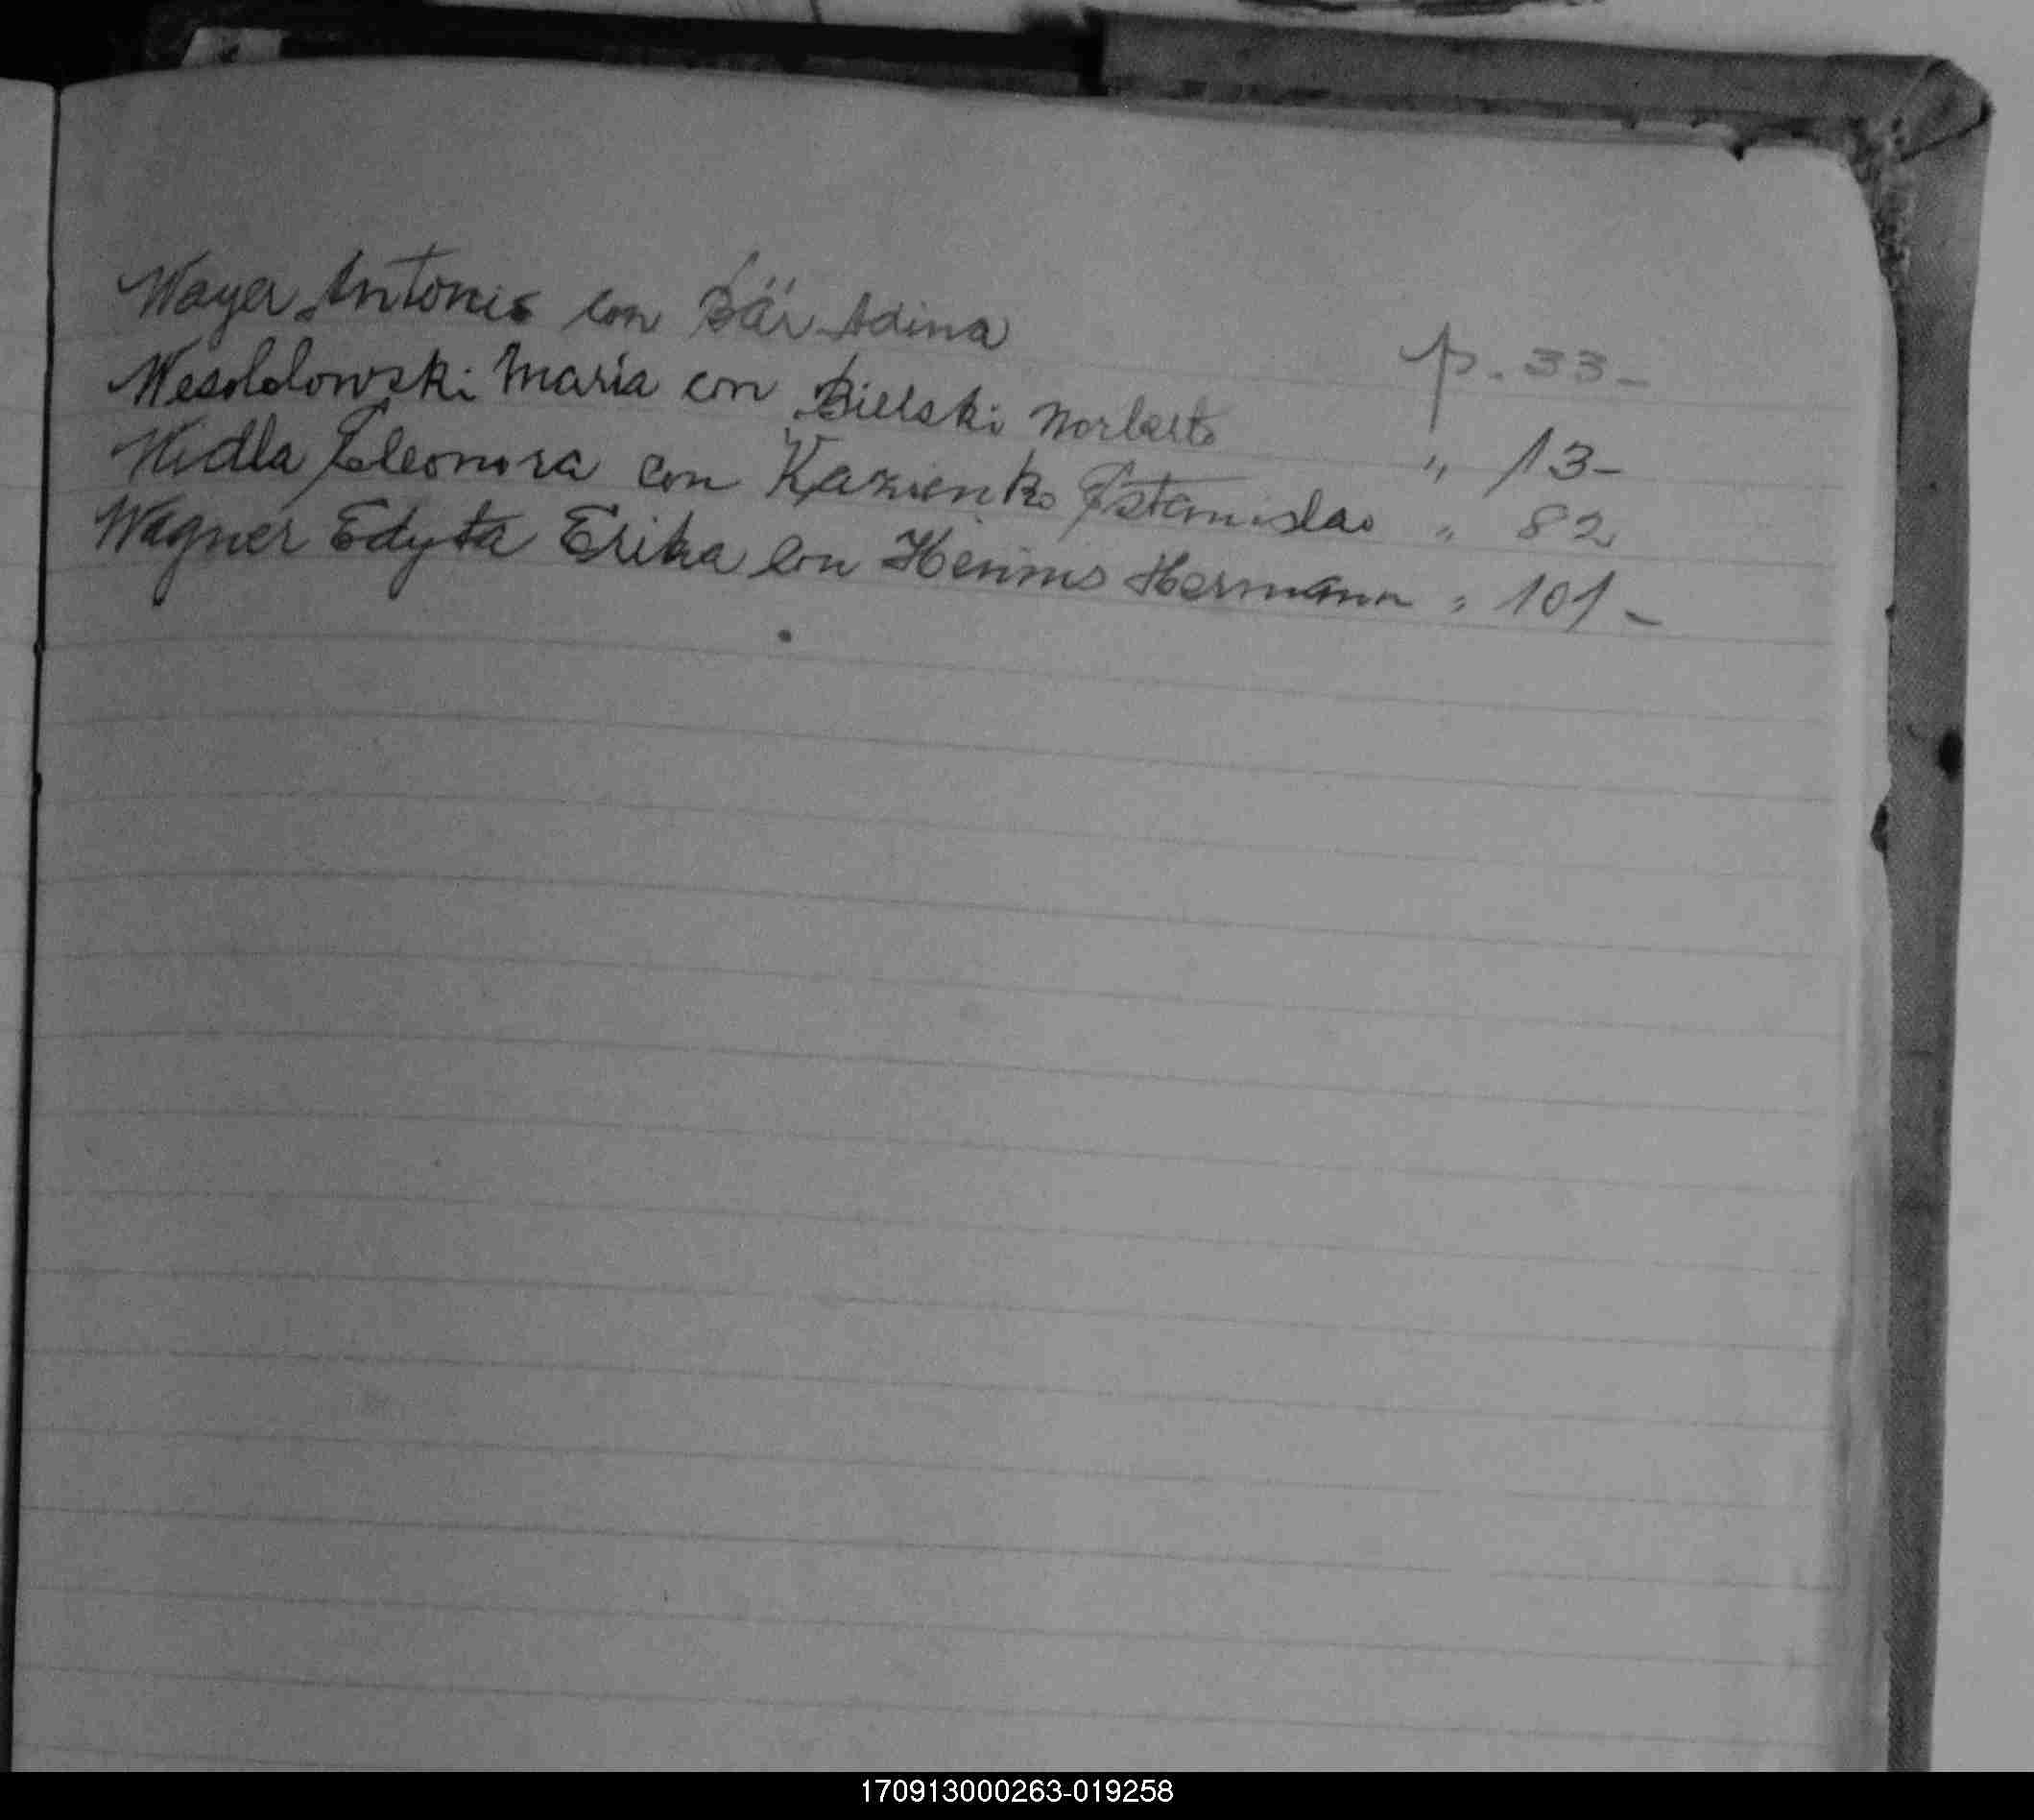 Wayer Antonio con Bär Adina p. 33-
Wesololowski Maria con Bielski Norberto " 13-
Widla Eleonora con Kazienko Estanislao " 82
Wagner Edyta Erika con Henins Hermann " 101-
170913000263-019258